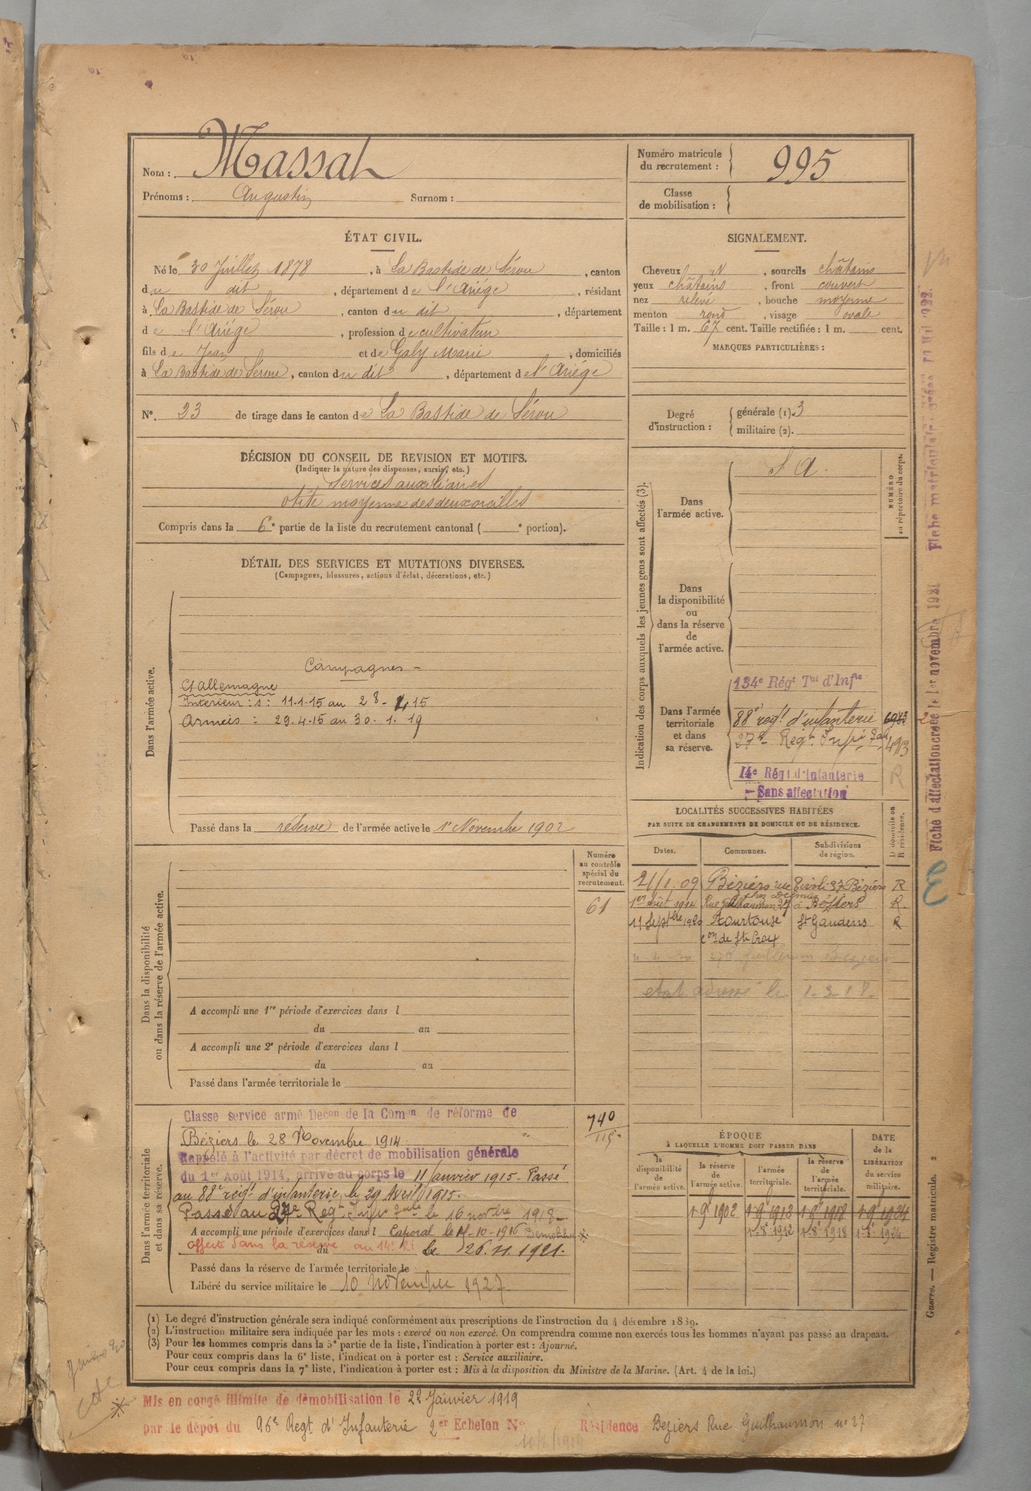 Nom : Massat
Prénoms : Augustin Surnom :
Numéro matricule du recrutement : 995
Classe de mobilisation :
ÉTAT CIVIL.
Né le 30 Juillet 1878, à La Bastide de Sérou, canton
du dit, département de l'Ariège, résidant
à La Bastide de Sérou, canton du dit, département
de l'Ariége, profession de cultivateur
fils de Jean et de Galy Marie, domiciliés
à La Bastide de Sérou, canton du dit, département de l'Ariége
N° 23 de tirage dans le canton de La Bastide de Sérou
SIGNALEMENT.
Cheveux, sourcils châtains
yeux châtains, front couvert
nez relevé, bouche moyenne
menton rond, visage ovale
Taille : 1 m. 67 cent. Taille rectifiée : 1 m. cent.
MARQUES PARTICULIÈRES :
Degré d'instruction : générale (1). 3
militaire (2).
DÉCISION DU CONSEIL DE REVISION ET MOTIFS.
(Indiquer la nature des dispenses, sursis, etc.)
Services auxiliaires
otite moyenne des deux oreilles
Compris dans la 6e partie de la liste du recrutement cantonal ( e portion).
DÉTAIL DES SERVICES ET MUTATIONS DIVERSES.
(Campagnes, blessures, actions d'éclat, décorations, etc.)
Dans l'armée active.
Campagnes
Ct Allemagne
Intérieur : s : 11-1-15 au 28-4-15
Armées : 29-4-15 au 30-1-19
Passé dans la réserve de l'armée active le 1er Novembre 1902
Indication des corps auxquels les jeunes gens sont affectés (3).
NUMÉRO au répertoire du corps.
Dans l'armée active.
S A.
Dans la disponibilité ou dans la réserve de l'armée active.
Dans l'armée territoriale et dans sa réserve.
134e Régt Tal d'Infie
88e regt d'infanterie
27e Regt Infie
14e Régt d'Infanterie
Sans affectation
R
LOCALITÉS SUCCESSIVES HABITÉES
PAR SUITE DE CHANGEMENTS DE DOMICILE OU DE RÉSIDENCE.
D domicile ou R résidence.
Dates. Communes. Subdivisions de région.
21/1.09 Béziers rue Tivoli 37 Béziers R
1er août 1914 Rue Guilhaumon 27 à Béziers R.
11 Septbre 1920 Tourtouse St Gaudens R
con de Ste Croix
etat adressé le 1-3-18-
Numéro au contrôle spécial du recrutement.
61
Dans la disponibilité ou dans la réserve de l'armée active.
A accompli une 1re période d'exercices dans l
du au
A accompli une 2e période d'exercices dans l
du au
Passé dans l'armée territoriale le
Dans l'armée territoriale et dans sa réserve.
Classe service armé Décon de la Comon de réforme de
Béziers le 28 Novembre 1914.
740
Rappelé à l'activité par décret de mobilisation générale
du 1er Août 1914, arrivé au corps le 11 janvier 1915. Passé
au 88e régt d'infanterie, le 29 Avril 1915.
Passé au 27e Regt Infie le 16 novbre 1918
A accompli une période d'exercices dans l
Caporal le
affecté dans la réserve au 14e RI le 26.11.1921.
Passé dans la réserve de l'armée territoriale le
Libéré du service militaire le 10 Novembre 1927
ÉPOQUE
À LAQUELLE L'HOMME DOIT PASSER DANS
DATE DE LA LIBÉRATION DU service militaire.
la disponibilité de l'armée active. la réserve de l'armée active. l'armée territoriale. la réserve de l'armée territoriale.
1-9 1902 1-9 1912 1-9 1918 1-9 1924
1-8 1912 1-8 1918 1-8 1924
(1) Le degré d'instruction générale sera indiqué conformément aux prescriptions de l'instruction du 4 décembre 1889.
(2) L'instruction militaire sera indiquée par les mots : exercé ou non exercé. On comprendra comme non exercés tous les hommes n'ayant pas passé au drapeau.
(3) Pour les hommes compris dans la 5e partie de la liste, l'indication à porter est : Ajourné.
Pour ceux compris dans la 6e liste, l'indication à porter est : Service auxiliaire.
Pour ceux compris dans la 7e liste, l'indication à porter est : Mis à la disposition du Ministre de la Marine. (Art. 4 de la loi.)
Mis en congé illimité de démobilisation le 22 Janvier 1919
par le dépot du 96e Regt d'Infanterie 2er Echelon N° Résidence Béziers Rue Guilhaumon no 27
Fiche d'affectation créée le 1er novembre 1921
Fiche matricule créée
Guerre. — Registre matricule. 2